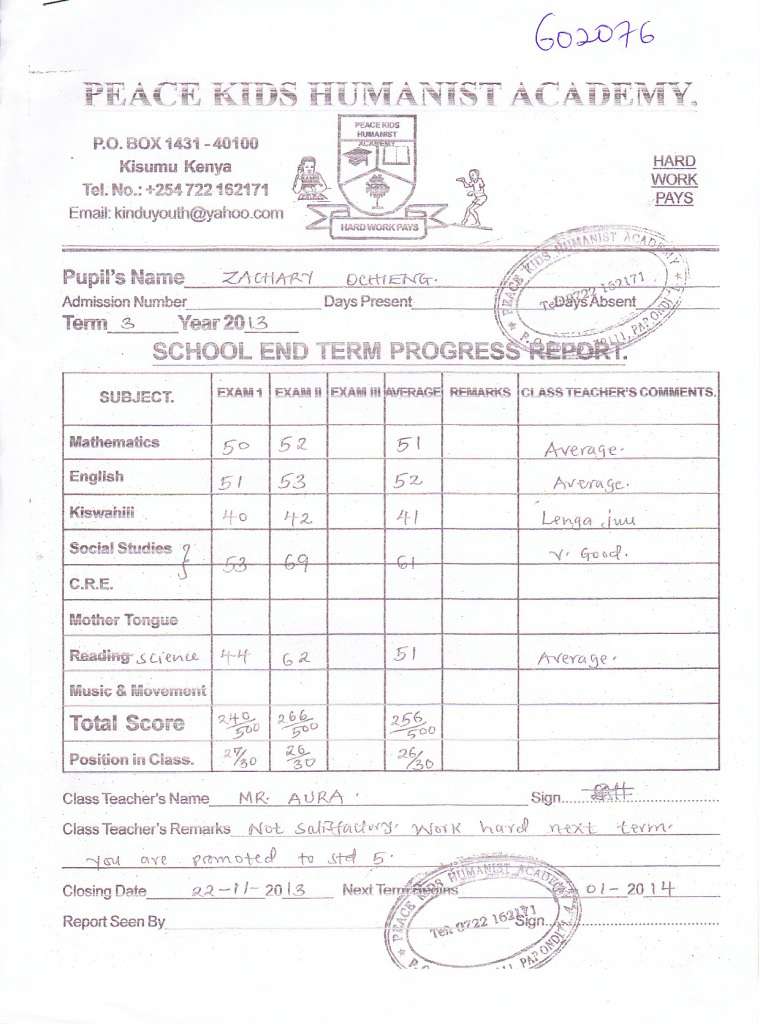 G02076
PEACE KIDS HUMANIST ACADEMY.
P.O. BOX 1431 - 40100
Kisumu Kenya
Tel. No.: +254 722 162171
Email: kinduyouth@yahoo.com
PEACE KIDS
HUMANIST
ACADEMY
HARD WORK PAYS
HARD
WORK
PAYS
Pupil's Name ZACHARY OCHIENG.
Admission Number Days Present Days Absent
Term 3 Year 2013
PEACE KIDS HUMANIST ACADEMY
Tel: 0722 162171
SCHOOL END TERM PROGRESS REPORT.
SUBJECT. EXAM 1 EXAM II EXAM III AVERAGE REMARKS CLASS TEACHER'S COMMENTS.
Mathematics 50 52 51 Average.
English 51 53 52 Average.
Kiswahili 40 42 41 Lenga juu
Social Studies } 53 69 61 V. Good.
C.R.E.
Mother Tongue
Reading science 44 62 51 Average.
Music & Movement
Total Score 240/500 266/500 256/500
Position in Class. 27/30 26/30 26/30
Class Teacher's Name MR. AURA. Sign
Class Teacher's Remarks Not satisfactory. Work hard next term.
You are promoted to std 5.
Closing Date 22-11-2013 Next Term Begins 01-2014
Report Seen By Sign
PEACE KIDS HUMANIST ACADEMY
Tel: 0722 162171